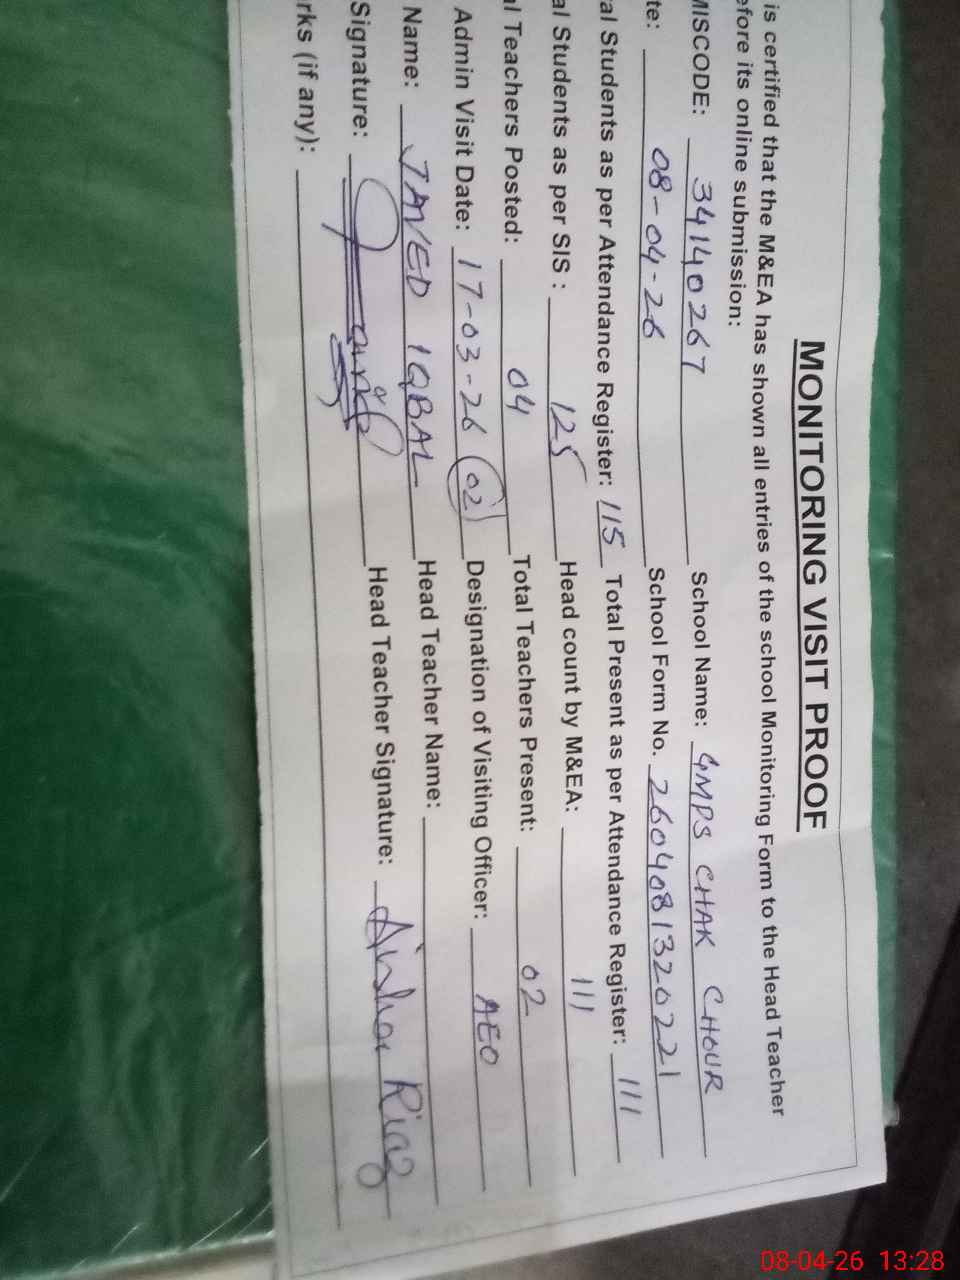 MONITORING VISIT PROOF
is certified that the M&EA has shown all entries of the school Monitoring Form to the Head Teacher
efore its online submission:
MISCODE: 34140267 School Name: GMPS CHAK CHOUR
te: 08-04-26 School Form No. 2604081320221
ral Students as per Attendance Register: 115 Total Present as per Attendance Register: 111
al Students as per SIS : 125 Head count by M&EA: 111
al Teachers Posted: 04 Total Teachers Present: 02
Admin Visit Date: 17-03-26 02 Designation of Visiting Officer: AEO
Name: JAVED IQBAL Head Teacher Name:
Signature: Head Teacher Signature: Aisha Riaz
rks (if any):
08-04-26 13:28